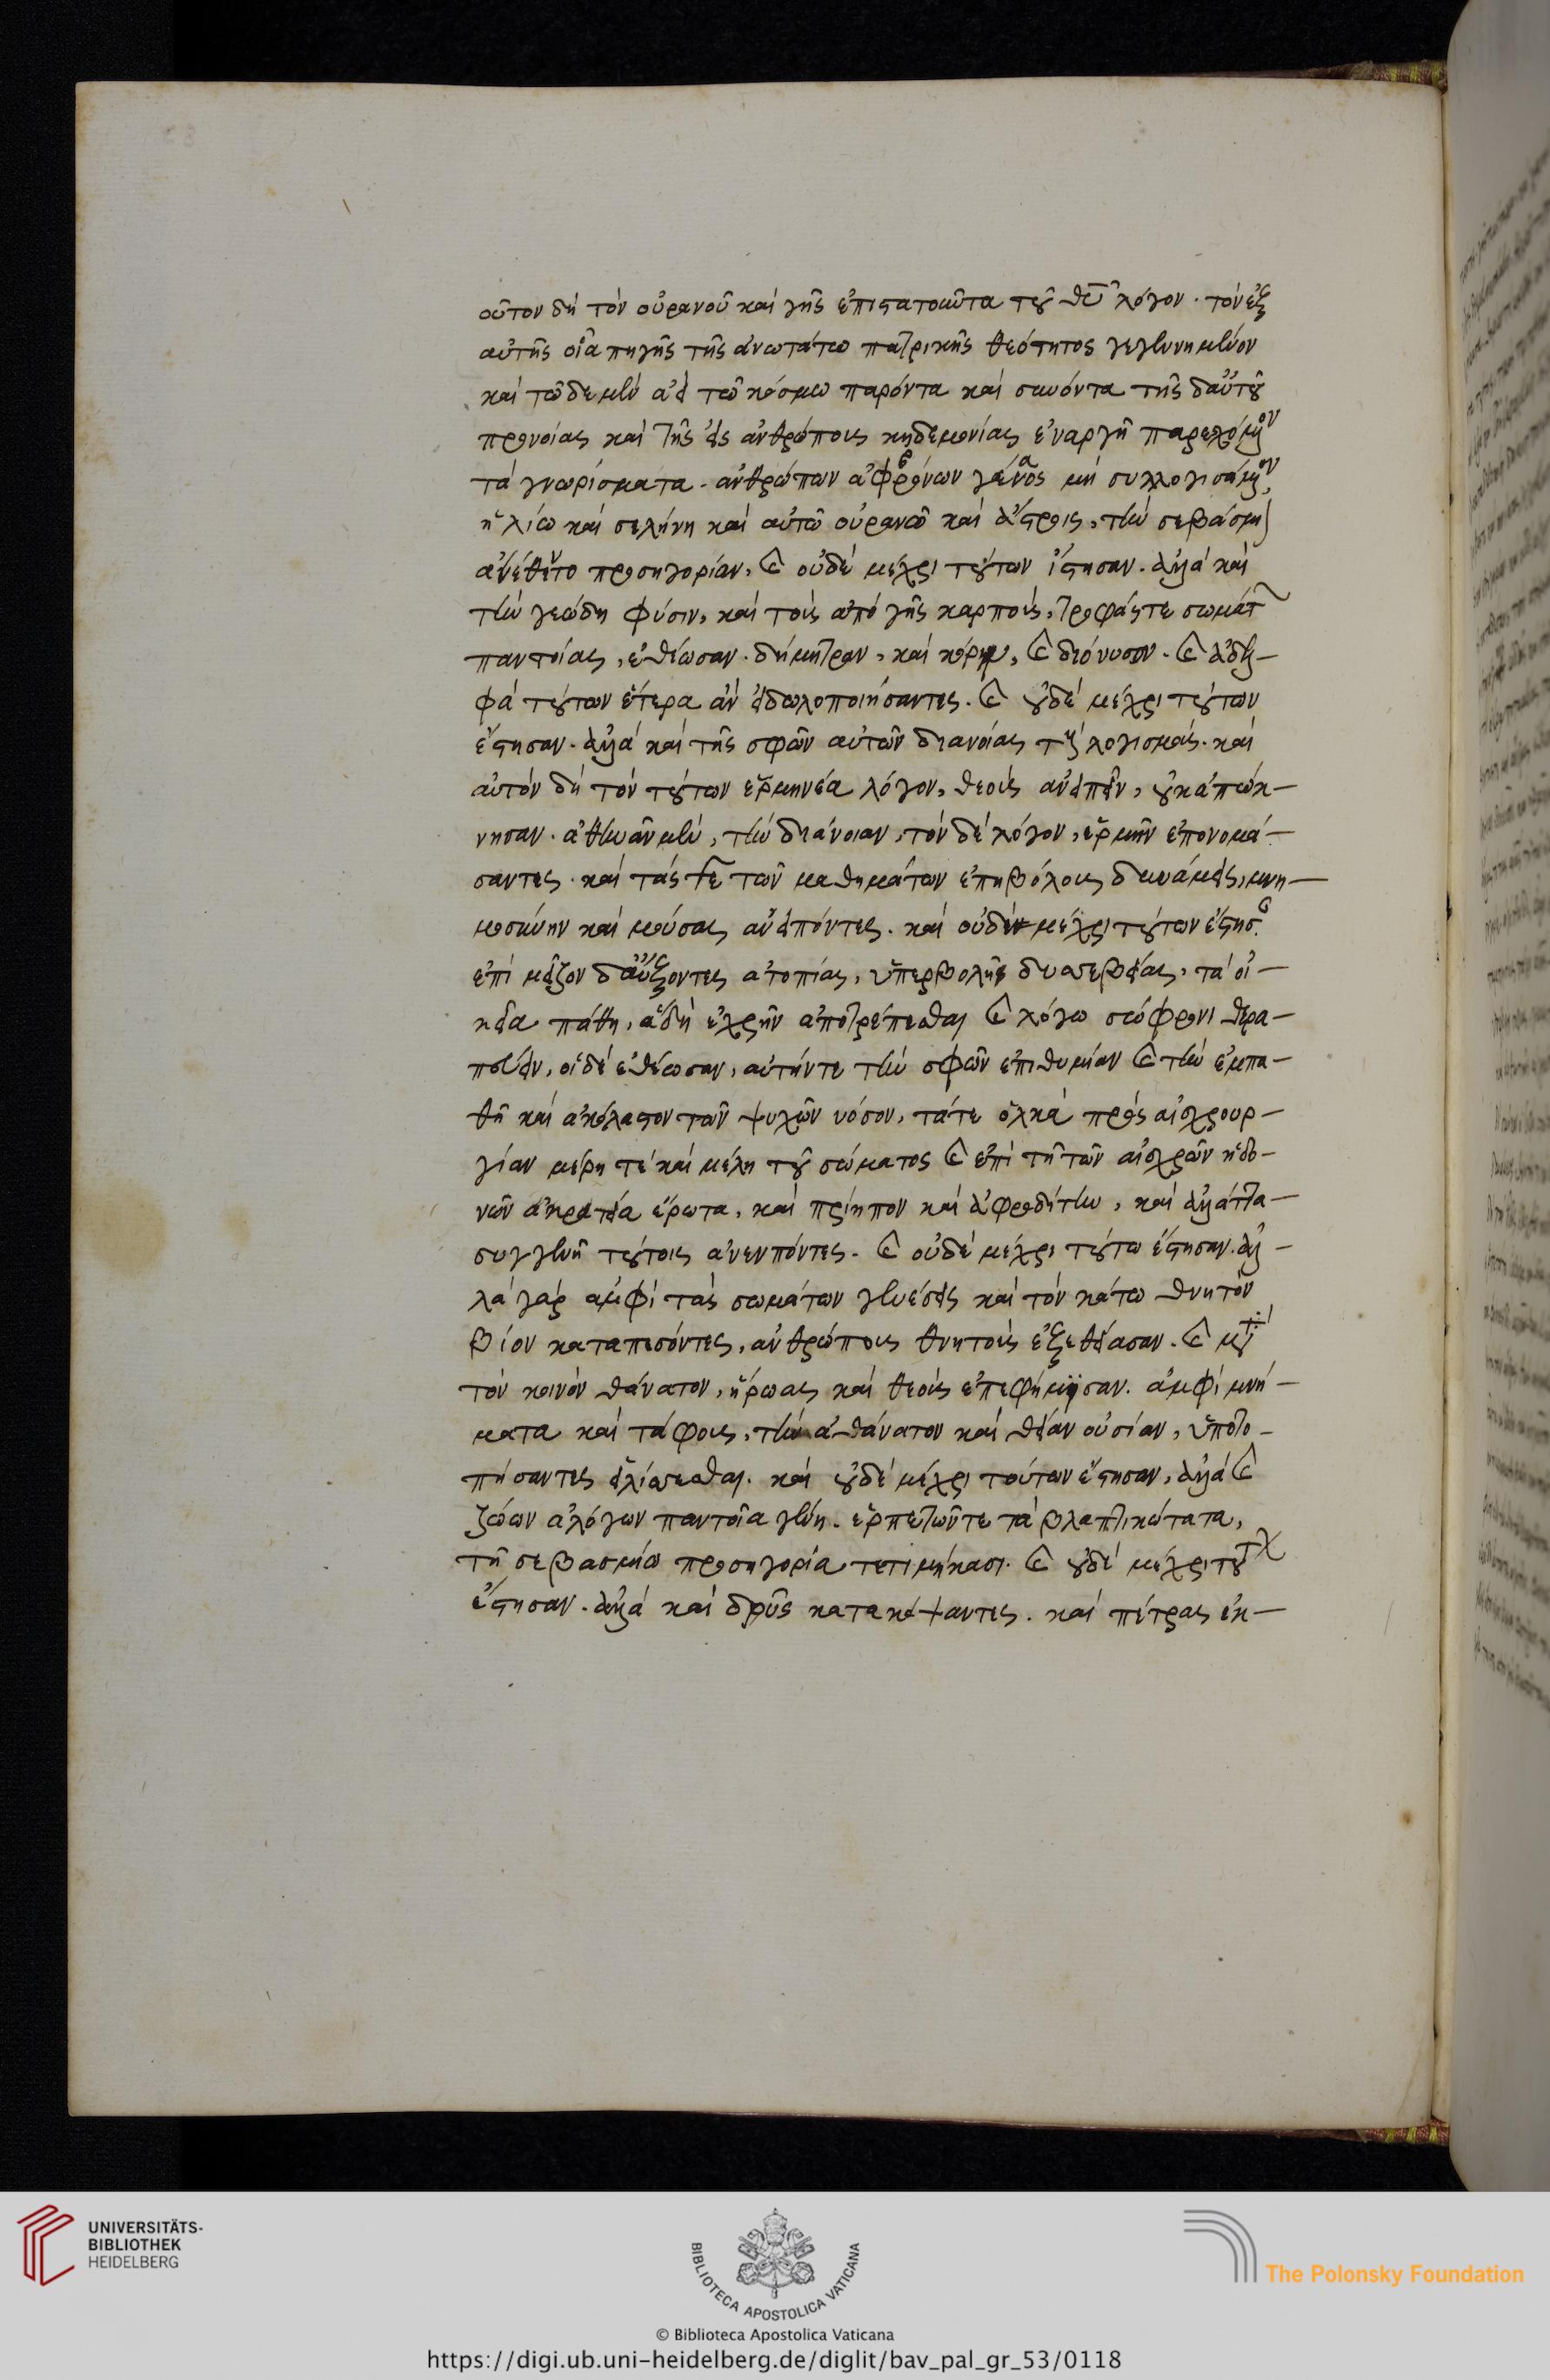 οὗτον δὴ τὸν οὐρανοῦ καὶ γῆς ἐπιστατοῦντα τοῦ θυ λόγον· τὸν ἐξ
αὐτῆς οἷα πηγῆς τῆς ἀνωτάτω πατρικῆς θεότητος γεγενημένον
καὶ τῶδε μὲν ἀεὶ τῶ κόσμω παρόντα καὶ συνόντα τῆς δ' αὐτοῦ
προνοίας καὶ τῆς εἰς ἀνθρώπους κηδεμονίας ἐναργῆ παρεχόμενον
τὰ γνωρίσματα. ἀνθρώπων ἀφρόνων μὴ συλλογισάμενον,
ἡλίω καὶ σελήνη καὶ αὐτῶ οὐρανῶ καὶ ἄστροις, τὴν σεβάσμιον
ἀνέθετο προσηγορίαν, καὶ οὐδὲ μέχρι τούτων ἔστησαν. ἀλλὰ καὶ
τὴν γεώδη φύσιν, καὶ τοὺς ἀπὸ γῆς καρποὺς, τροφάς τε σωμάτων
παντοίας, ἐθέωσαν. δήμητραν, καὶ κόρην, καὶ διόνυσον. καὶ ἀδελ-
φὰ τούτων ἕτερα ἂν εἰδωλοποιήσαντες. καὶ οὐδὲ μέχρι τούτων
ἔστησαν. ἀλλὰ καὶ τῆς σφῶν αὐτῶν διανοίας τοὺς λογισμούς. καὶ
αὐτὸν δὴ τὸν τούτων ἑρμηνέα λόγον, θεοὺς ἀνειπεῖν, οὐκ ἀπώκ-
νησαν. ἀθηνᾶν μὲν, τὴν διάνοιαν, τὸν δὲ λόγον, ἑρμῆν ἐπονομά-
σαντες. καὶ τάς τε τῶν μαθημάτων ἐπηβόλους δυνάμεις, μνη-
μοσύνην καὶ μούσας ἀνειπόντες. καὶ οὐδὲ μέχρι τούτων ἔστησαν.
ἐπὶ μεῖζον δ' αὔξοντες ἀτοπίας, ὑπερβολῆς δυσσεβείας, τὰ οἰ-
κεῖα πάθη, ἃ δὴ ἐχρῆν ἀποτρέπεσθαι καὶ λόγω σώφρονι θερα-
πεύειν, οἱ δὲ ἐθέωσαν, αὐτήν τε τὴν σφῶν ἐπιθυμίαν καὶ τὴν ἐμπα-
θῆ καὶ ἀκόλαστον τῶν ψυχῶν νόσον, τά τε ὁλκὰ πρὸς αἰσχρουρ-
γίαν μέρη τὲ καὶ μέλη τοῦ σώματος καὶ ἐπὶ τῆ τῶν αἰσχρῶν ἡδο-
νῶν ἀκρατεία ἔρωτα, καὶ πρίηπον καὶ ἀφροδίτην, καὶ ἀλλάττα
συγγενῆ τούτοις ἀνενπόντες. καὶ οὐδὲ μέχρι τούτω ἔστησαν. ἀλ-
λὰ γὰρ ἀμφὶ τὰς σωμάτων γενέσεις καὶ τὸν κάτω θνητὸν
βίον καταπεσόντες, ἀνθρώπους θνητοὺς ἐξεθείασαν. καὶ μετὰ
τὸν κοινὸν θάνατον, ἥρωας καὶ θεοὺς ἐπεφήμισαν. ἀμφὶ μνή-
ματα καὶ τάφους, τὴν ἀθάνατον καὶ θείαν οὐσίαν, ὑποτο-
πήσαντες εἱλίσσεσθαι. καὶ οὐδὲ μέχρι τούτων ἔστησαν, ἀλλὰ καὶ
ζώων ἀλόγων παντοῖα γένη. ἑρπετῶν τε τὰ βλαπτικώτατα,
τῆ σεβασμίω προσηγορία τετιμήκασι. καὶ οὐδὲ μέχρι τούτων
ἔστησαν. ἀλλὰ καὶ δρῦς κατακόψαντες. καὶ πέτρας ἐκ-
UNIVERSITÄTS-
BIBLIOTHEK
HEIDELBERG
BIBLIOTECA APOSTOLICA VATICANA
The Polonsky Foundation
© Biblioteca Apostolica Vaticana
https://digi.ub.uni-heidelberg.de/diglit/bav_pal_gr_53/0118